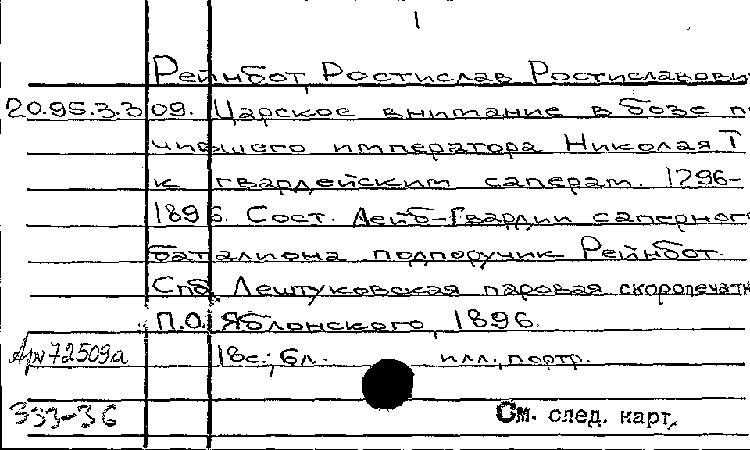 1
Рейнбот, Ростислав Ростиславови
20.95.3.3 09. Царское внимание в бозе п
чившего императора Николая I
к гвардейским саперам. 1796-
1896. Сост. Лейб-Гвардии саперног
баталиона подпоручик Рейнбот.
Спб. Лештуковская паровая скоропечатн
П.О. Яблонского, 1896.
Арх 72509а 18с.; 6л. илл., портр.
333-36 См. след. карт.